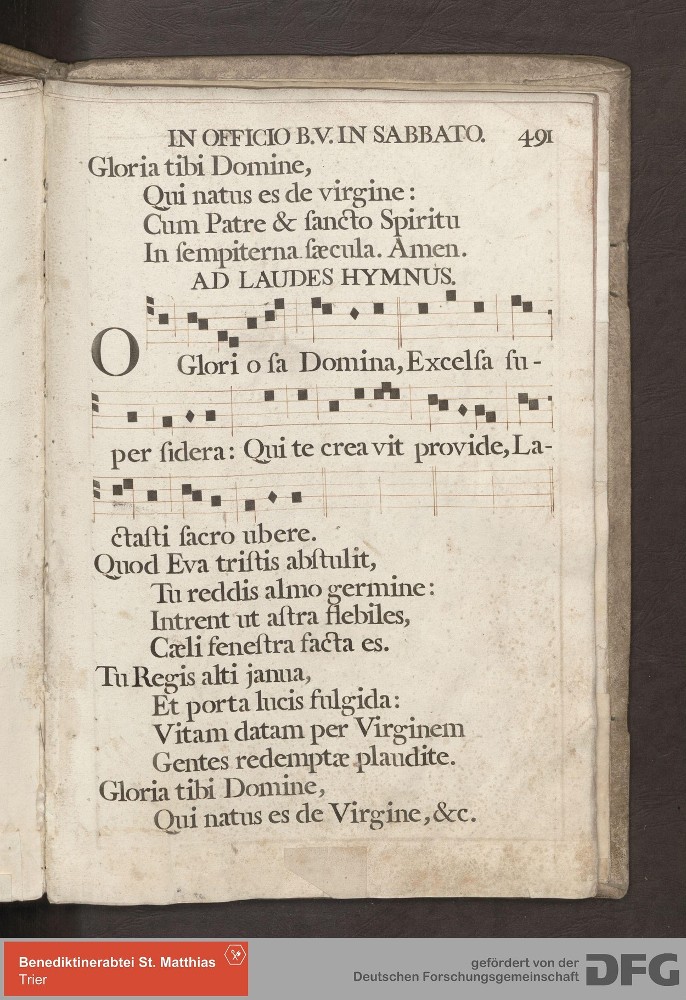 IN OFFICIO B.V. IN SABBATO. 491
Gloria tibi Domine,
Qui natus es de virgine:
Cum Patre & ſancto Spiritu
In ſempiterna ſæcula. Amen.
AD LAUDES HYMNUS.
O Glori o ſa Domina, Excelſa ſu-
per ſidera: Qui te crea vit provide, La-
ctaſti ſacro ubere.
Quod Eva triſtis abſtulit,
Tu reddis almo germine:
Intrent ut aſtra flebiles,
Cæli feneſtra facta es.
Tu Regis alti janua,
Et porta lucis fulgida:
Vitam datam per Virginem
Gentes redemptæ plaudite.
Gloria tibi Domine,
Qui natus es de Virgine, &c.
Benediktinerabtei St. Matthias
Trier
gefördert von der
Deutschen Forschungsgemeinschaft
DFG